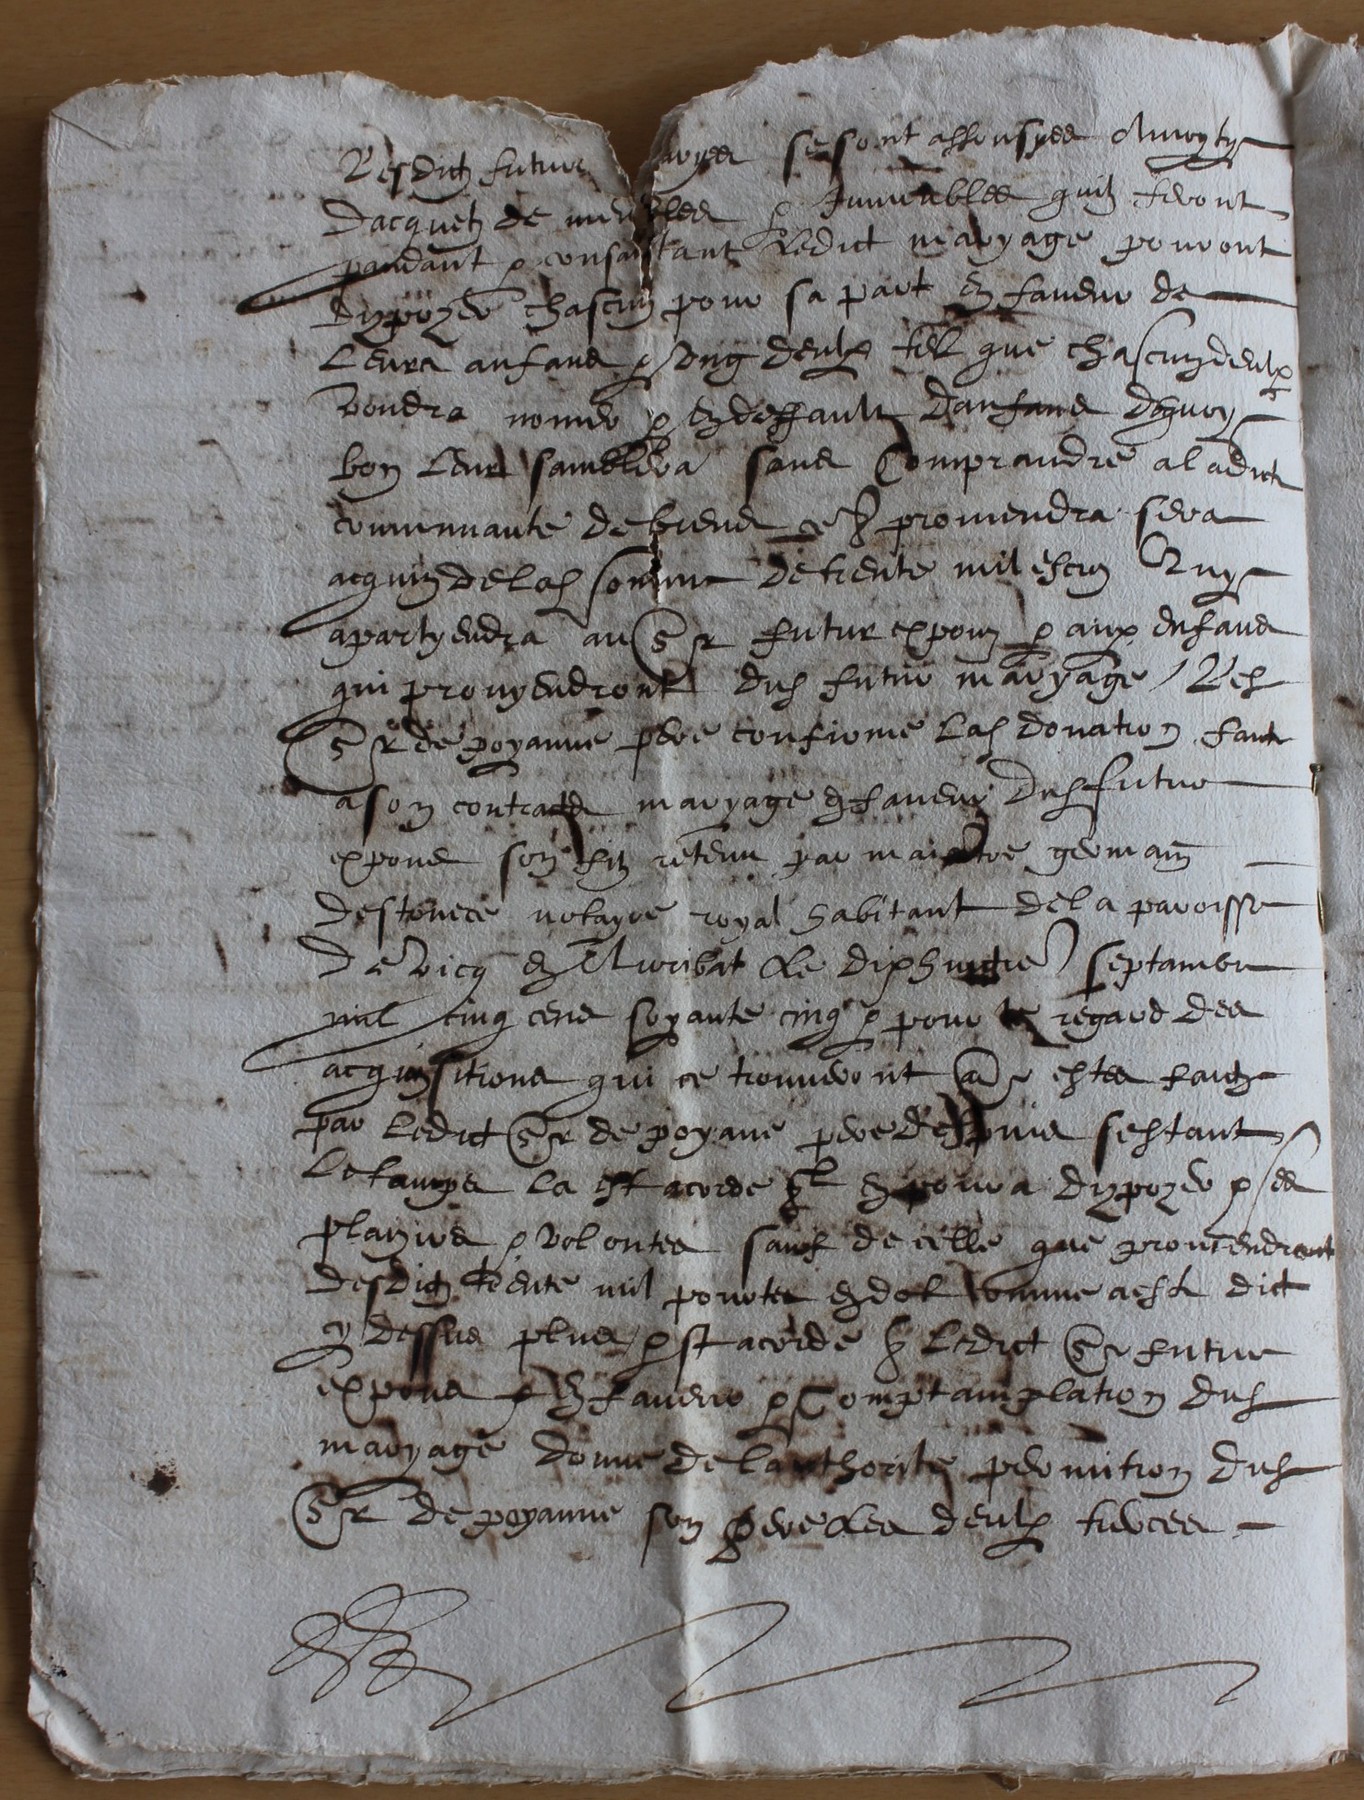 Lesdictz futurs maryes se sont assossyes A moytye
dacquetz de meubles & Immeubles quilz feront
pandant & consistant ledict maryage pouront
dispozer chascun pour sa part en faveur de
Leurs anfans & dung deulx tel que chascun deulx
voudra nomer & en deffault danfans
bon leur samblera sans Comprandre a ladicte
communaute de biens ce que proviendra sera
acquis de lad somme de trente mil escus
apartyendra au Sr futur expoux & aux enfans
qui provyendront dud futur maryage / Led
Sr de poyanne pere confirme lad donation faicte
a son contract maryage en faveur dud futur
expous son filz retenu par maistre germain
destouece notayre royal habitant de la paroisse
De vicq en Auribat le dixhuictie septambre
mil cinq cens soixante cinq & pour le regard des
acquisitions qui ce trouveront avoir estes faictes
par Ledict Sr de poyane pere despuis sestant
Le tamps la est acorde quil en poura dispozer a ses
plaizirs & volontes sauf de celle que proviendront
desdictz trente mil portes en dot comme a este dict
cy dessus plus est acorde que Ledict Sr futur
expous en faveur & Comptamplation dud
maryage donne de lauthorite permition dud
Sr de poyanne son pere les deulx tierces